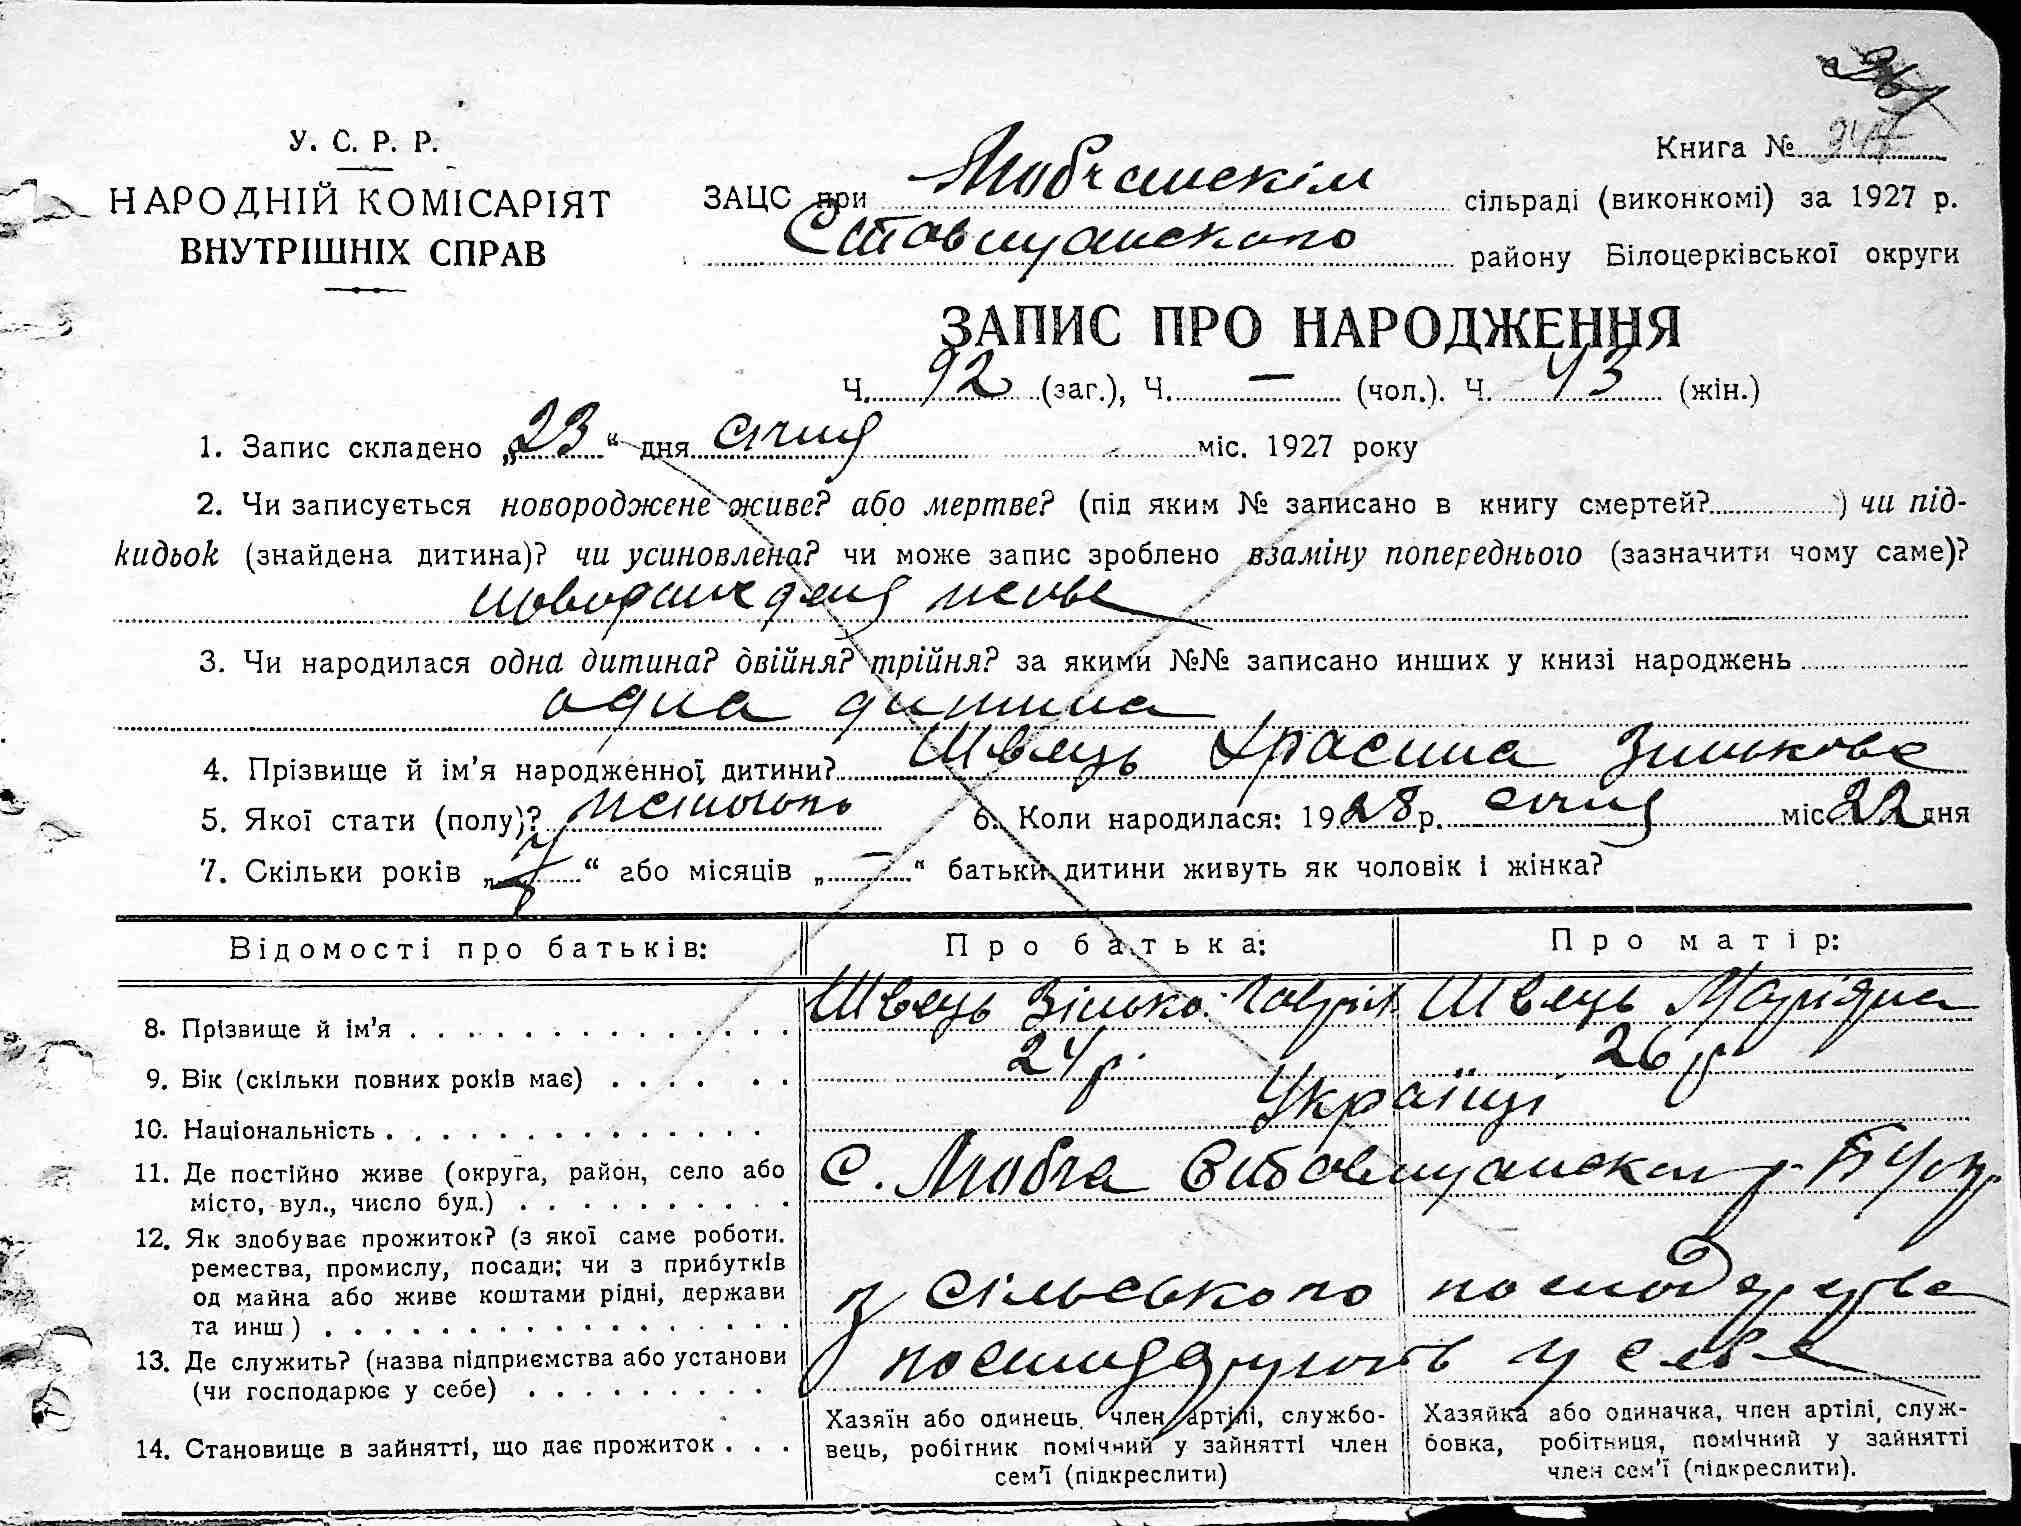 У. С. Р. Р.
НАРОДНІЙ КОМІСАРІЯТ
ВНУТРІШНІХ СПРАВ
Книга №
ЗАЦС при Любчанскім сільраді (виконкомі) за 1927 р.
Ставищанского району Білоцерківської округи
ЗАПИС ПРО НАРОДЖЕННЯ
Ч. 92 (заг.), Ч. — (чол.). Ч. 43 (жін.)
1. Запис складено „23“ дня січня міс. 1927 року
2. Чи записується новороджене живе? або мертве? (під яким № записано в книгу смертей? ) чи під-
кидьок (знайдена дитина)? чи усиновлена? чи може запис зроблено взаміну попереднього (зазначити чому саме)?
живе
3. Чи народилася одна дитина? двійня? трійня? за якими №№ записано инших у книзі народжень
одна дитина
4. Прізвище й ім'я народженної дитини? Швець Фросина Зинькова
5. Якої стати (полу)? жіночого 6. Коли народилася: 1928 р. січня міс. 22 дня
7. Скільки років „ “ або місяців „—“ батьки дитини живуть як чоловік і жінка?
Відомості про батьків: Про батька: Про матір:
8. Прізвище й ім'я Швець Зінько Швець Маріяна
9. Вік (скільки повних років має) 24 р. 26 р
10. Національність Українці
11. Де постійно живе (округа, район, село або
місто, вул., число буд.) с. Любча Ставищанскаго р.
12. Як здобуває прожиток? (з якої саме роботи.
ремества, промислу, посади; чи з прибутків
од майна або живе коштами рідні, держави
та инш) з сільського господарства
13. Де служить? (назва підприємства або установи
(чи господарює у себе) господарують у себе
14. Становище в зайнятті, що дає прожиток
Хазяїн або одинець, член артілі, службо-
вець, робітник помічний у зайнятті член
сем'ї (підкреслити)
Хазяйка або одиначка, член артілі, служ-
бовка, робітниця, помічний у зайнятті
член сем'ї (підкреслити).